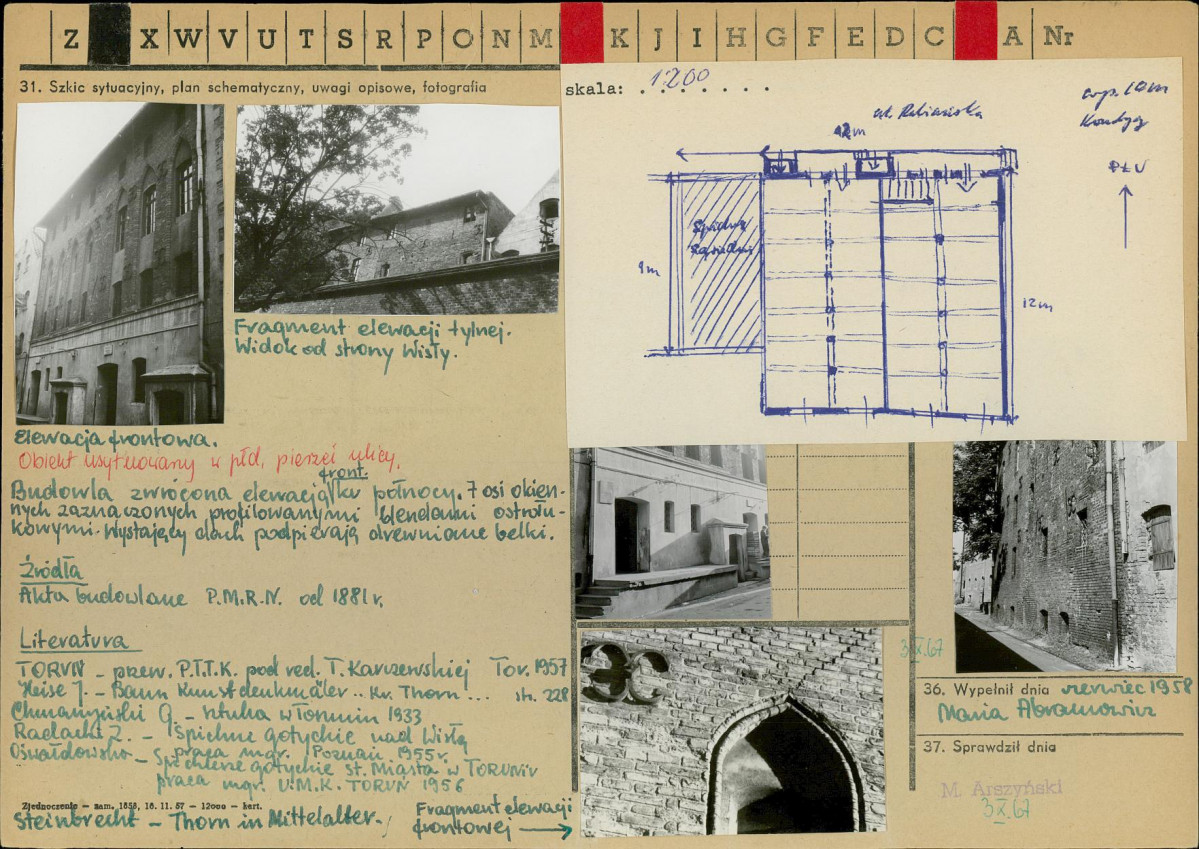 Z X W V U T S R P O N M K J I H G F E D C A Nr
31. Szkic sytuacyjny, plan schematyczny, uwagi opisowe, fotografia
skala: 1:200
ul. Rabiańska
12m
wys. 10m
Kondyg
PŁN
Spichrz
sąsiedni
9m
12m
Fragment elewacji tylnej.
Widok od strony Wisły.
Elewacja frontowa.
Obiekt usytuowany w płd. pierzei ulicy.
front.
Budowla zwrócona elewacją ku północy. 7 osi okien-
nych zaznaczonych profilowanymi blendami ostrołu-
kowymi. Wystający dach podpierają drewniane belki.
Źródła
Akta budowlane P.M.R.N. od 1881 r.
Literatura
TORUŃ – przew. P.T.T.K. pod red. T. Karczewskiej Tor. 1957
Heise J. – Baun Kunstdenkmäler .. Kr. Thorn ... str. 228
Chmarzyński G. – Sztuka w Toruniu 1933
Radacki Z. – Spichrze gotyckie nad Wisłą
praca mgr. Poznań 1955 r.
Oswałdowska – Spichlerze gotyckie St. Miasta w TORUNIU
praca mgr. U.M.K. TORUŃ 1956
Zjednoczenie – zam. 1858, 16. 11. 57 – 12000 – kart.
Steinbrecht – Thorn in Mittelalter
Fragment elewacji
frontowej →
3 X. 67
36. Wypełnił dnia czerwiec 1958
Maria Abramowicz
37. Sprawdził dnia
M. Arszyński
3 X. 67